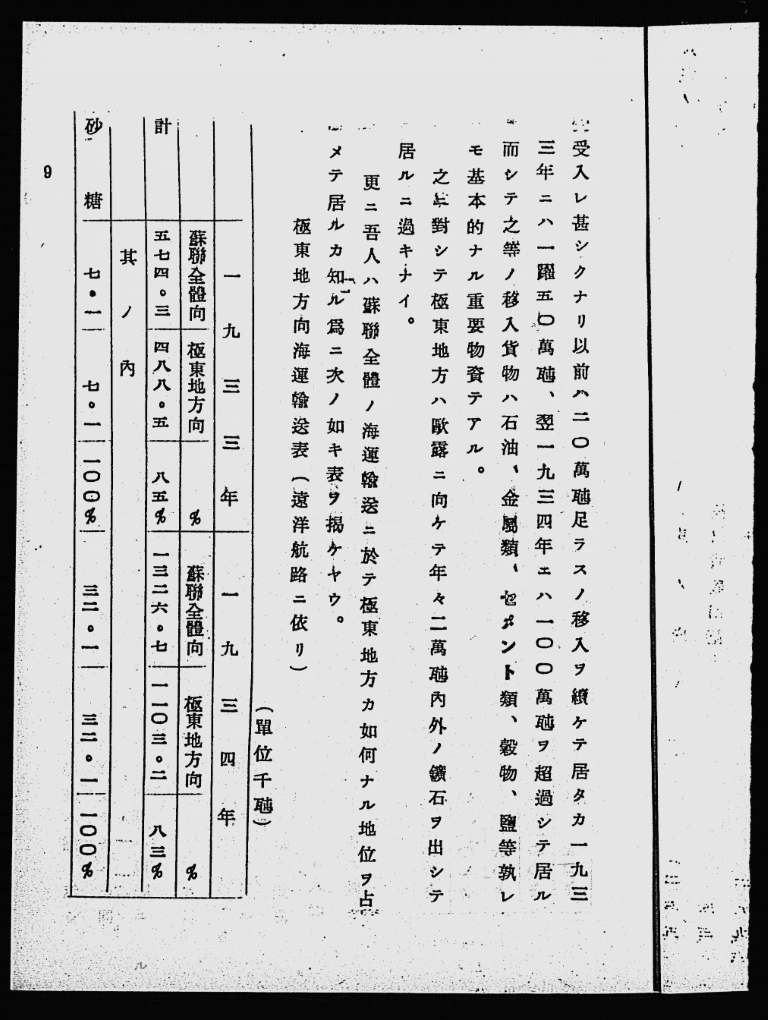 受入レ甚シクナリ以前ハ二〇萬瓲足ラスノ移入ヲ續ケテ居タカ一九三
三年ニハ一躍五〇萬瓲、翌一九三四年エハ一〇〇萬瓲ヲ超過シテ居ル
而シテ之等ノ移入貨物ハ石油、金屬類、セメント類、穀物、鹽等孰レ
モ基本的ナル重要物資テアル。
之ニ對シテ極東地方ハ歐露ニ向ケテ年々二萬瓲內外ノ鑛石ヲ出シテ
居ルニ過キナイ。
更ニ吾人ハ蘇聯全體ノ海運輸送ニ於テ極東地方カ如何ナル地位ヲ占
メテ居ルカ知ル爲ニ次ノ如キ表ヲ揭ケヤウ。
極東地方向海運輸送表(遠洋航路ニ依リ)
(單位千瓲)
一九三三年 一九三四年
蘇聯全體向 極東地方向 % 蘇聯全體向 極東地方向 %
計 五七四。三 四八八。五 八五% 一三二六。七 一一〇三。二 八三%
其ノ內
砂糖 七。一 七。一 一〇〇% 三二。一 三二。一 一〇〇%
9